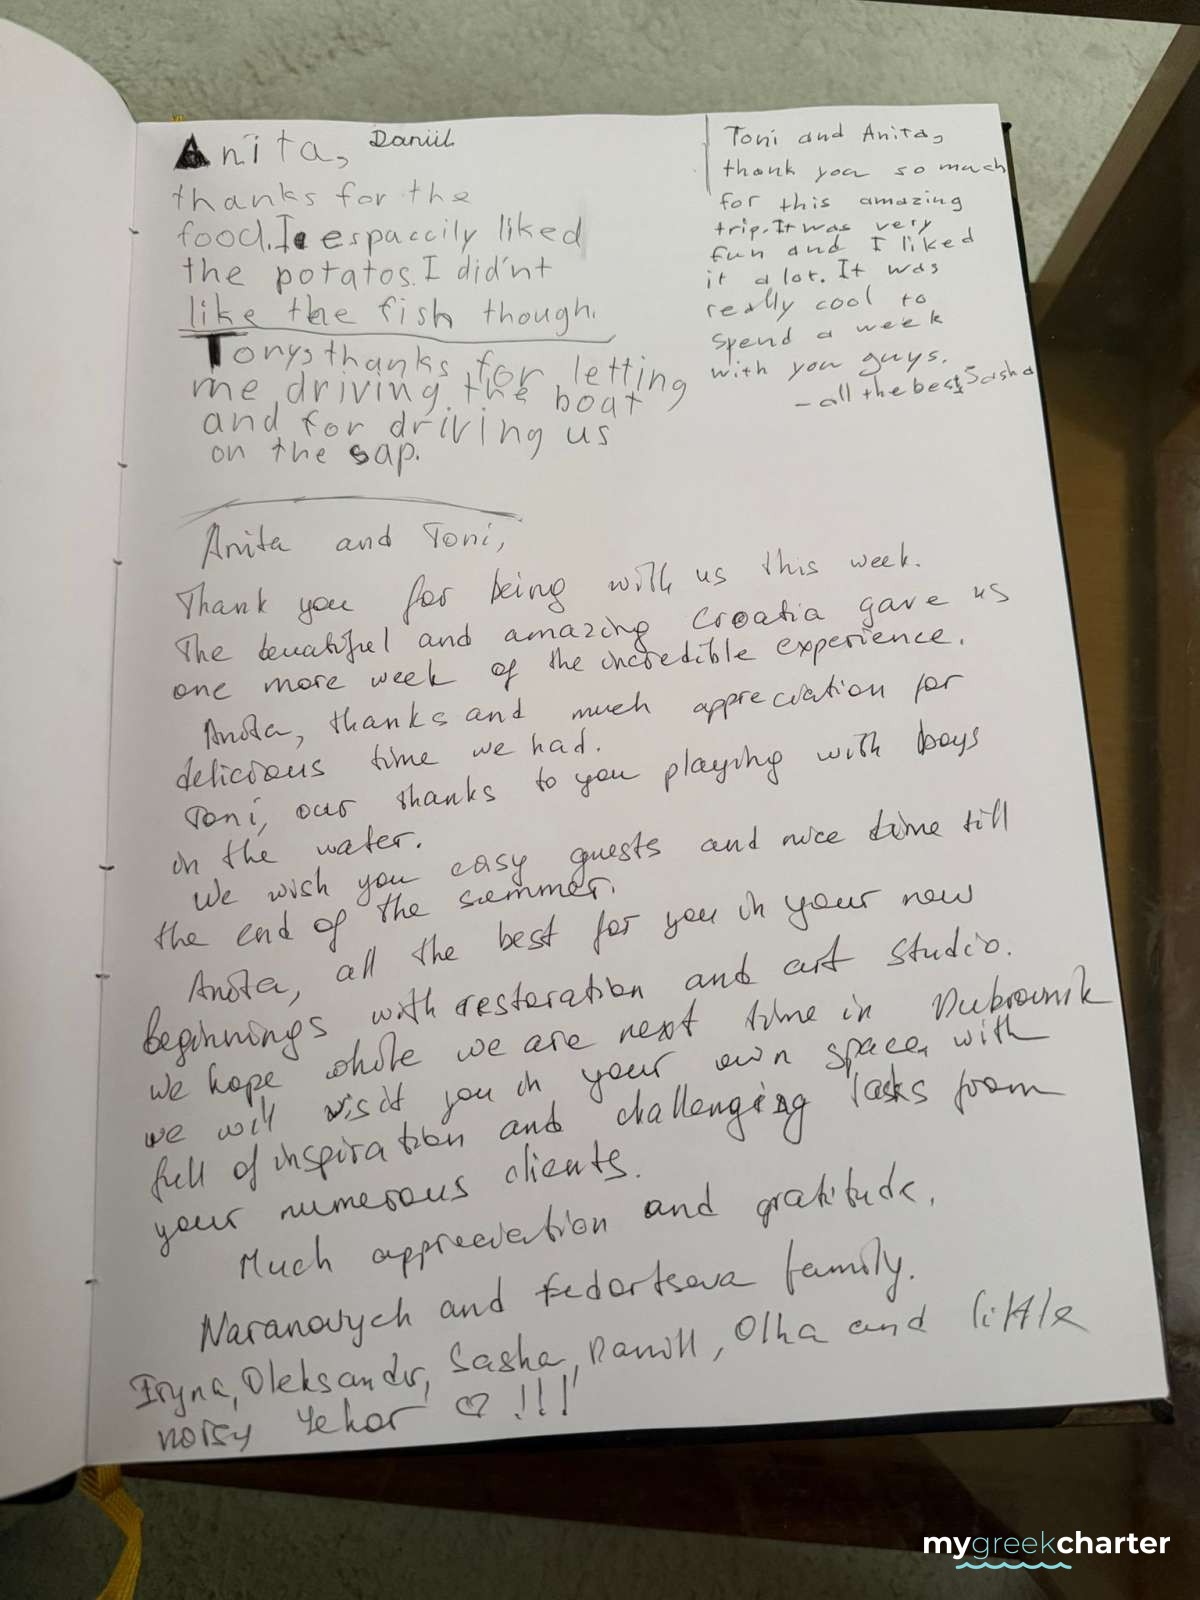 Anita, Daniil
thanks for the
food. I espaccily liked
the potatos. I did'nt
like the fish though.
Tony, thanks for letting
me driving the boat
and for driving us
on the sap.
Toni and Anita,
thank you so much
for this amazing
trip. It was very
fun and I liked
it a lot. It was
really cool to
spend a week
with you guys.
- all the best, Sasha
Anita and Toni,
Thank you for being with us this week.
The beuatiful and amazing Croatia gave us
one more week of the incredible experience.
Anita, thanks and much appreciation for
delicious time we had.
Toni, our thanks to you playing with boys
in the water.
We wish you easy guests and nice time till
the end of the summer.
Anita, all the best for you in your new
beginnings with restoration and art studio.
We hope while we are next time in Dubrovnik
we will visit you in your own space, with
full of inspiration and challenging tasks from
your numerous clients.
Much appreciation and gratitude.
Naranovych and Fedortseva family.
Iryna, Oleksandr, Sasha, Daniil, Olha and little
noisy Yehor ♡ !!!
mygreekcharter